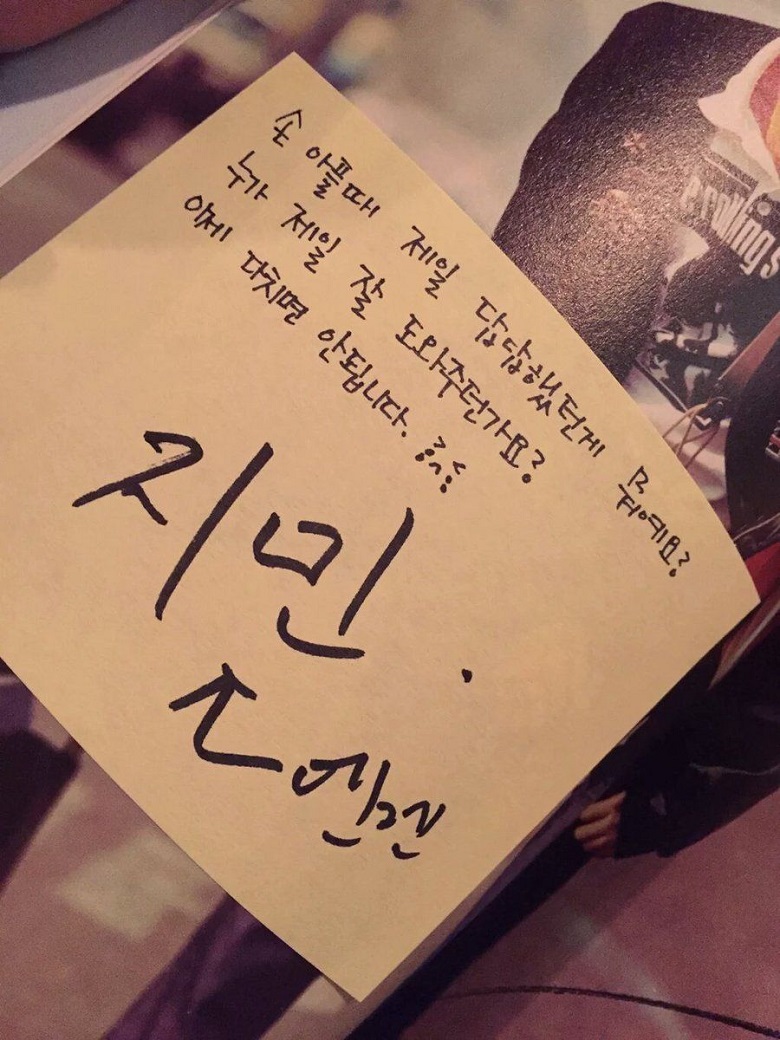 손 아플때 제일 답답했던게 뭐에요?
누가 제일 잘 도와주던가요?
이제 다치면 안됩니다.
지민.
e rolling s